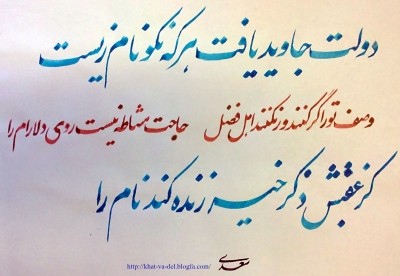 دولت جاوید یافت هرکه نکونام زیست
وصف تو را گر کنند ور نکنند اهل فضل حاجت مشاطه نیست روی دلارام را
کز عقبش ذکر خیر زنده کند نام را
سعدی
http://khat-va-del.blogfa.com/